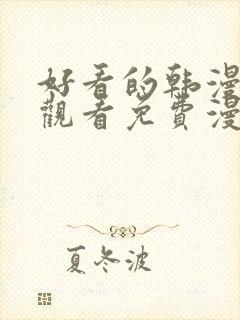 好看的韩漫
觀看免費漫
夏冬波